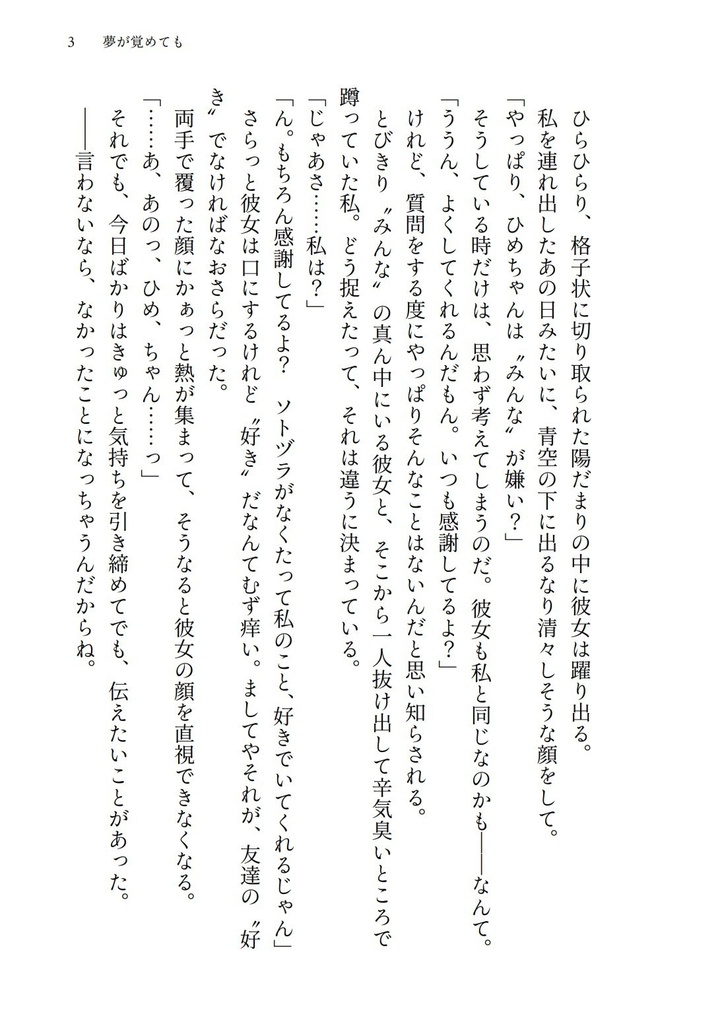 3 夢が覚めても
ひらひらり、格子状に切り取られた陽だまりの中に彼女は躍り出る。
私を連れ出したあの日みたいに、青空の下に出るなり清々しそうな顔をして。
「やっぱり、ひめちゃんは〝みんな〟が嫌い？」
そうしている時だけは、思わず考えてしまうのだ。彼女も私と同じなのかも――なんて。
「ううん、よくしてくれるんだもん。いつも感謝してるよ？」
けれど、質問をする度にやっぱりそんなことはないんだと思い知らされる。
とびきり〝みんな〟の真ん中にいる彼女と、そこから一人抜け出して辛気臭いところで
蹲っていた私。どう捉えたって、それは違うに決まっている。
「じゃあさ……私は？」
「ん。もちろん感謝してるよ？　ソトヅラがなくたって私のこと、好きでいてくれるじゃん」
さらっと彼女は口にするけれど〝好き〟だなんてむず痒い。ましてやそれが、友達の〝好
き〟でなければなおさらだった。
両手で覆った顔にかぁっと熱が集まって、そうなると彼女の顔を直視できなくなる。
「……あ、あのっ、ひめ、ちゃん……っ」
それでも、今日ばかりはきゅっと気持ちを引き締めてでも、伝えたいことがあった。
――言わないなら、なかったことになっちゃうんだからね。